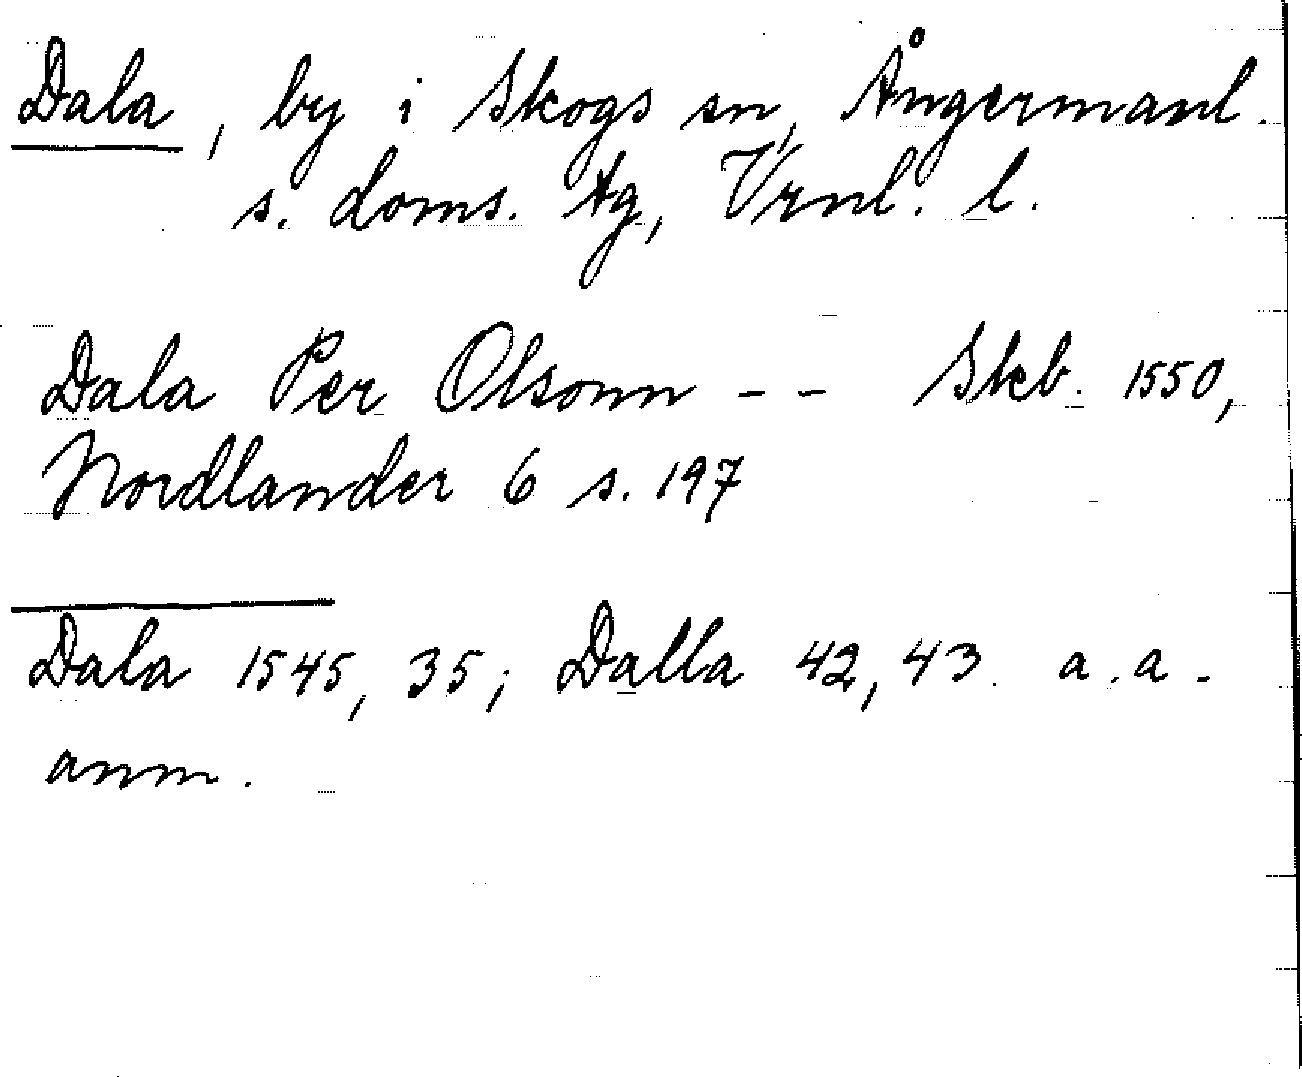 Dala, by i Skogs sn, Ångermanl.
s. doms. tg, Vrnl. l.
Dala Per Olsonn -- Skb. 1550,
Nordlander 6 s. 197
Dala 1545, 35; Dalla 42, 43. a.a.
anm.